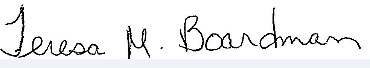 Teresa M. Boardman